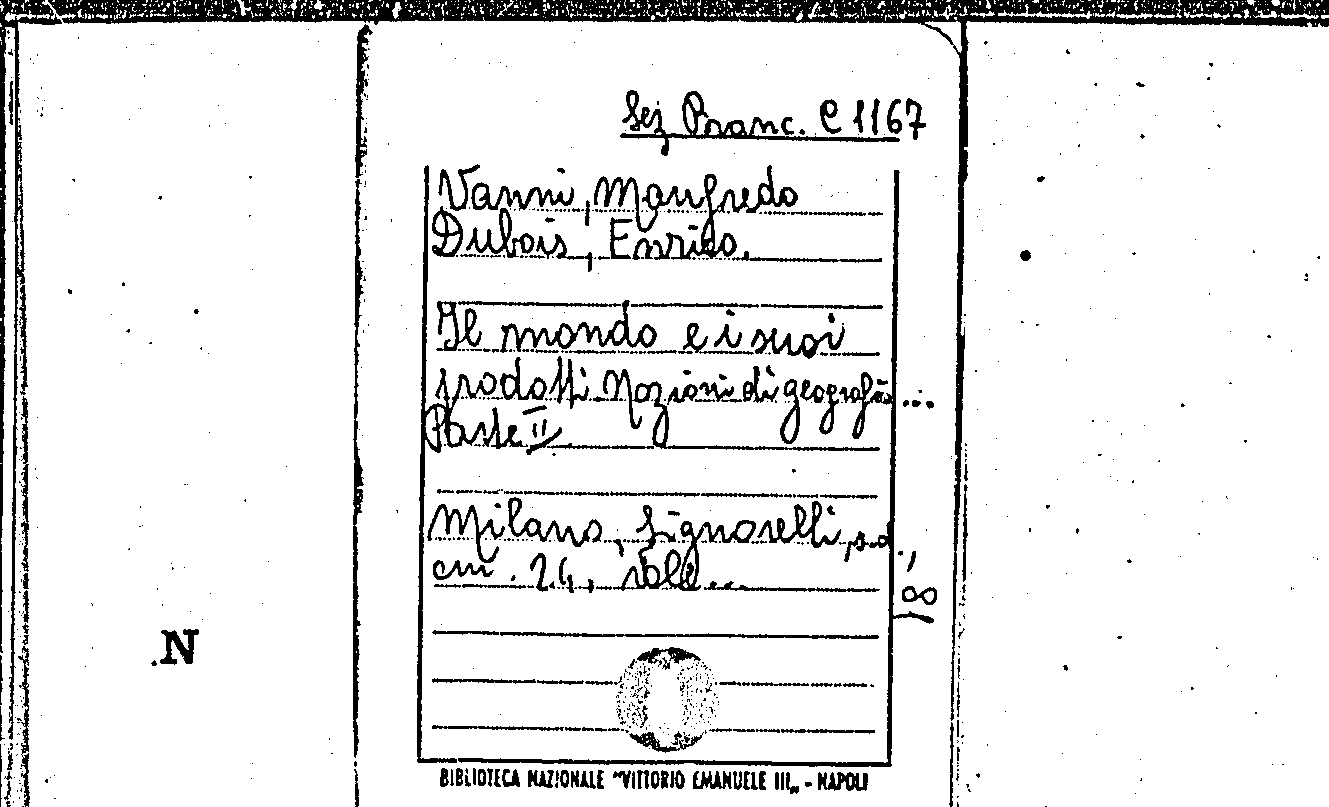 Sez Branc. C 1167
Vanni, Manfredo
Dubois, Enrico.
Il mondo e i suoi
prodotti. Nozioni di geografia...
Parte II
Milano, Signorelli, s.d.,
cm. 24,
18
.N
BIBLIOTECA NAZIONALE "VITTORIO EMANUELE III„ - NAPOLI